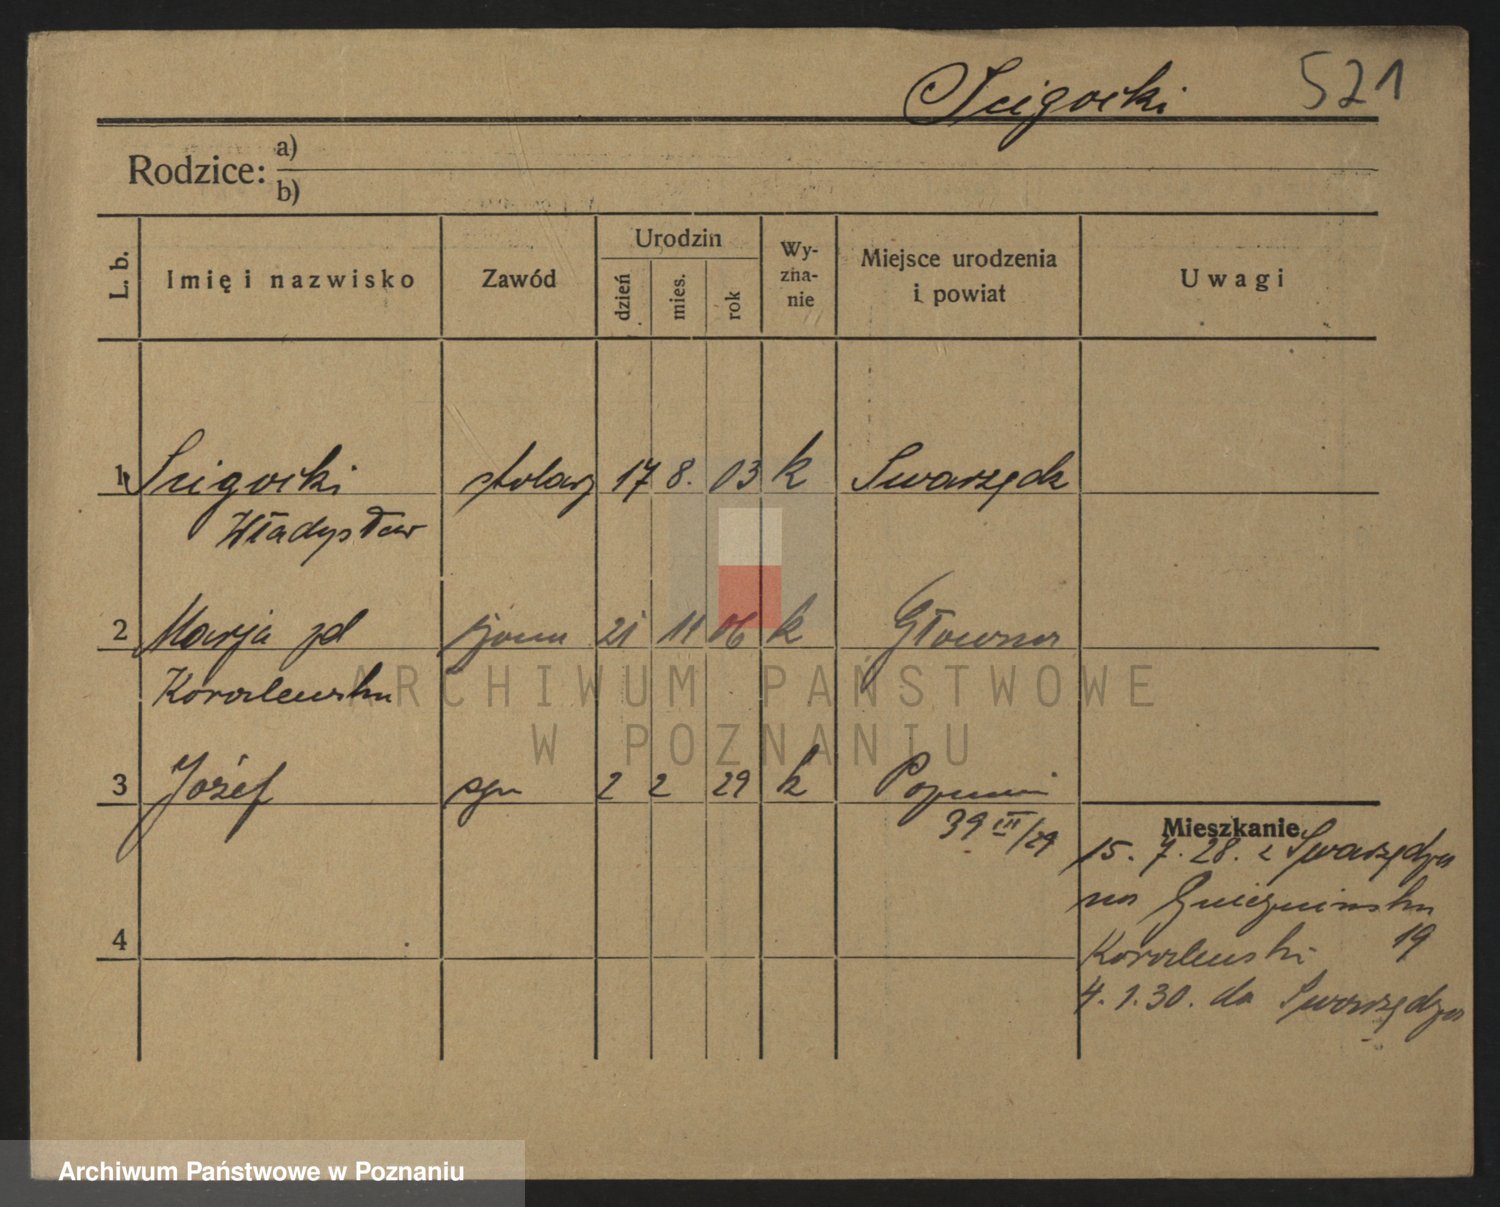 Scigocki 521
Rodzice: a)
b)
L. b. Imię i nazwisko Zawód Urodzin dzień mies. rok Wy-zna-nie Miejsce urodzenia i powiat Uwagi
1 Scigocki stolarz 17 8. 03 k Swarzędz
Władysław
2 Marja zd żona 21 11 06 k Główna
Koralewska
ARCHIWUM PAŃSTWOWE
W POZNANIU
3 Józef syn 2 2 29 k Poznań
39 III/29
Mieszkanie
15. 7. 28. z Swarzędza
na Gnieźnieńska
Koralewski 19
4
4. 1. 30. do Swarzędza
Archiwum Państwowe w Poznaniu